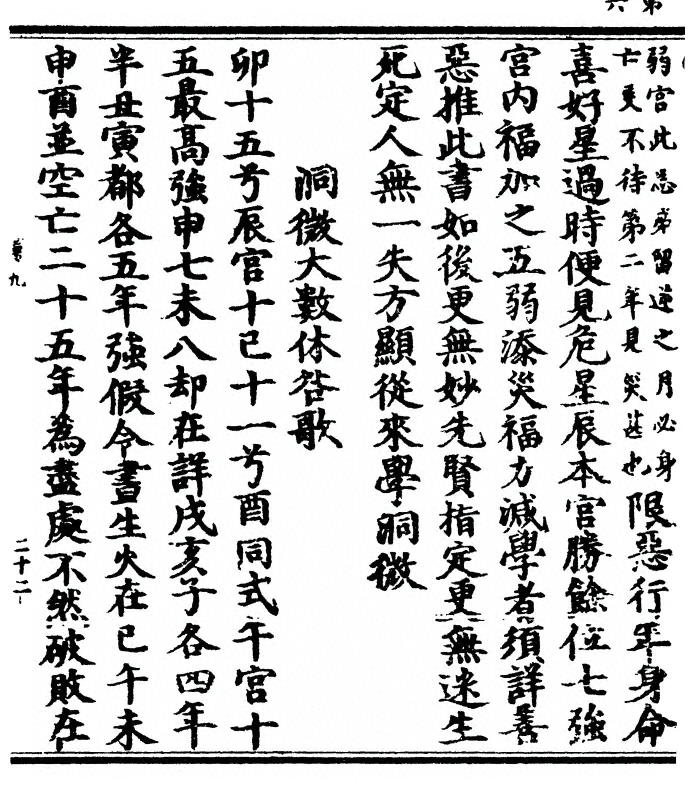 弱宮此忌弟留逆之月必身
亡更不待第二年見哭甚也
限惡行年身命
喜好星過時便見危星辰本宮勝餘位七強
宮內福加之五弱添災福力減學者須詳善
惡推此書如後更無妙先賢指定更無迷生
死定人無一失方顯從來學洞微
洞微大數休咎歌
卯十五兮辰宮十巳十一兮酉同式午宮十
五最高強申七未八却在詳戌亥子各四年
半丑寅都各五年強假令晝生火在巳午未
申酉並空亡二十五年為盡處不然破敗在
卷九
二十二
第
六